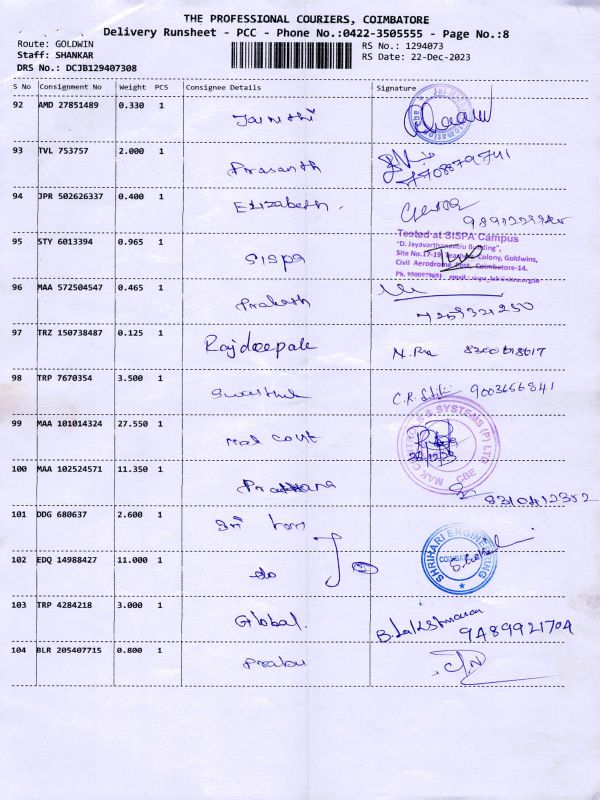 THE PROFESSIONAL COURIERS, COIMBATORE
Delivery Runsheet - PCC - Phone No.:0422-3505555 - Page No.:8
Route: GOLDWIN
Staff: SHANKAR
DRS No.: DCJB129407308
RS No.: 1294073
RS Date: 22-Dec-2023
S No Consignment No Weight PCS Consignee Details Signature
92 AMD 27851489 0.330 1
93 TVL 753757 2.000 1 Prasanth 7708879741
94 JPR 502626337 0.400 1 Elizabeth.
95 STY 6013394 0.965 1 Sispa
Tested at SISPA Campus
"D. Jayavarthanavelu Building",
Site No.17-19, Colony, Goldwins,
Civil Aerodrome Post, Coimbatore-14.
Ph. 9500979691
96 MAA 572504547 0.465 1 Prakash
97 TRZ 150738487 0.125 1 Rajdeepale
98 TRP 7670354 3.500 1 9003656841
99 MAA 101014324 27.550 1
SYSTEMS (P) LTD
CBE
100 MAA 102524571 11.350 1 8310412352
101 DDG 680637 2.600 1 Sri
102 EDQ 14988427 11.000 1 do
SHRIHARI ENGINEERING
103 TRP 4284218 3.000 1 Global. 9489921704
104 BLR 205407715 0.800 1 Prabu